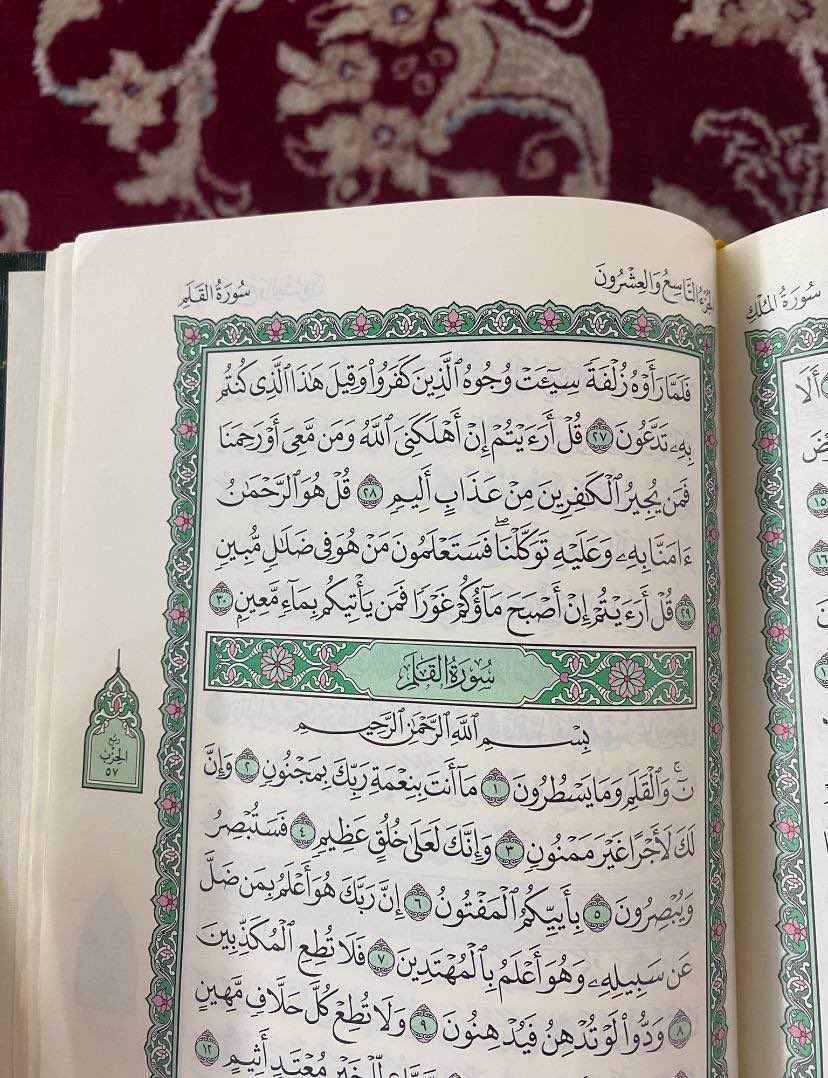 الجزء التاسع والعشرون
سورة القلم
فَلَمَّا رَأَوْهُ زُلْفَةً سِيٓـَٔتْ وُجُوهُ ٱلَّذِينَ كَفَرُوا۟ وَقِيلَ هَٰذَا ٱلَّذِى كُنتُم
بِهِۦ تَدَّعُونَ ٢٧ قُلْ أَرَءَيْتُمْ إِنْ أَهْلَكَنِىَ ٱللَّهُ وَمَن مَّعِىَ أَوْ رَحِمَنَا
فَمَن يُجِيرُ ٱلْكَٰفِرِينَ مِنْ عَذَابٍ أَلِيمٍ ٢٨ قُلْ هُوَ ٱلرَّحْمَٰنُ
ءَامَنَّا بِهِۦ وَعَلَيْهِ تَوَكَّلْنَاۖ فَسَتَعْلَمُونَ مَنْ هُوَ فِى ضَلَٰلٍ مُّبِينٍ
٢٩ قُلْ أَرَءَيْتُمْ إِنْ أَصْبَحَ مَآؤُكُمْ غَوْرًا فَمَن يَأْتِيكُم بِمَآءٍ مَّعِينٍۭ ٣٠
سُورَةُ القَلَمِ
بِسْمِ ٱللَّهِ ٱلرَّحْمَٰنِ ٱلرَّحِيمِ
نٓۚ وَٱلْقَلَمِ وَمَا يَسْطُرُونَ ١ مَآ أَنتَ بِنِعْمَةِ رَبِّكَ بِمَجْنُونٍ ٢ وَإِنَّ
لَكَ لَأَجْرًا غَيْرَ مَمْنُونٍ ٣ وَإِنَّكَ لَعَلَىٰ خُلُقٍ عَظِيمٍ ٤ فَسَتُبْصِرُ
وَيُبْصِرُونَ ٥ بِأَييِّكُمُ ٱلْمَفْتُونُ ٦ إِنَّ رَبَّكَ هُوَ أَعْلَمُ بِمَن ضَلَّ
عَن سَبِيلِهِۦ وَهُوَ أَعْلَمُ بِٱلْمُهْتَدِينَ ٧ فَلَا تُطِعِ ٱلْمُكَذِّبِينَ
٨ وَدُّوا۟ لَوْ تُدْهِنُ فَيُدْهِنُونَ ٩ وَلَا تُطِعْ كُلَّ حَلَّافٍ مَّهِينٍ
لِّلْخَيْرِ مُعْتَدٍ أَثِيمٍ ١٢
ربع
الحزب
٥٧
سورة الملك
أَلَا
١٥
١٦